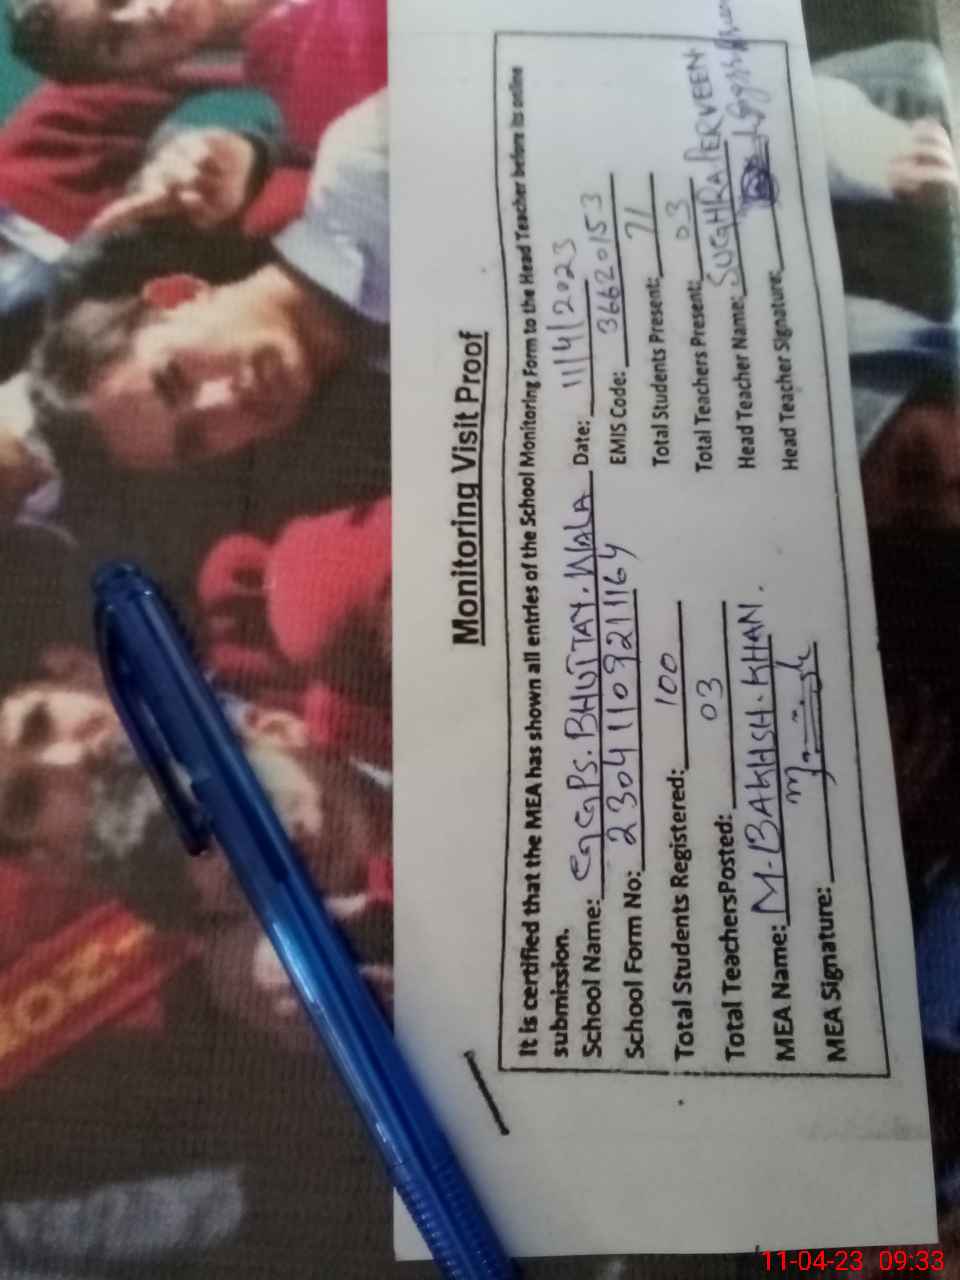 Monitoring Visit Proof
It is certified that the MEA has shown all entries of the School Monitoring Form to the Head Teacher before its online
submission.
School Name: GGPS. BHUTTAY. WALA Date: 11/4/2023
School Form No: 2304110921164 EMIS Code: 36620153
Total Students Registered: 100 Total Students Present: 71
Total TeachersPosted: 03 Total Teachers Present: 03
MEA Name: M. BAKHSH. KHAN. Head Teacher Name: SUGHRA PERVEEN
MEA Signature: Head Teacher Signature:
11-04-23 09:33